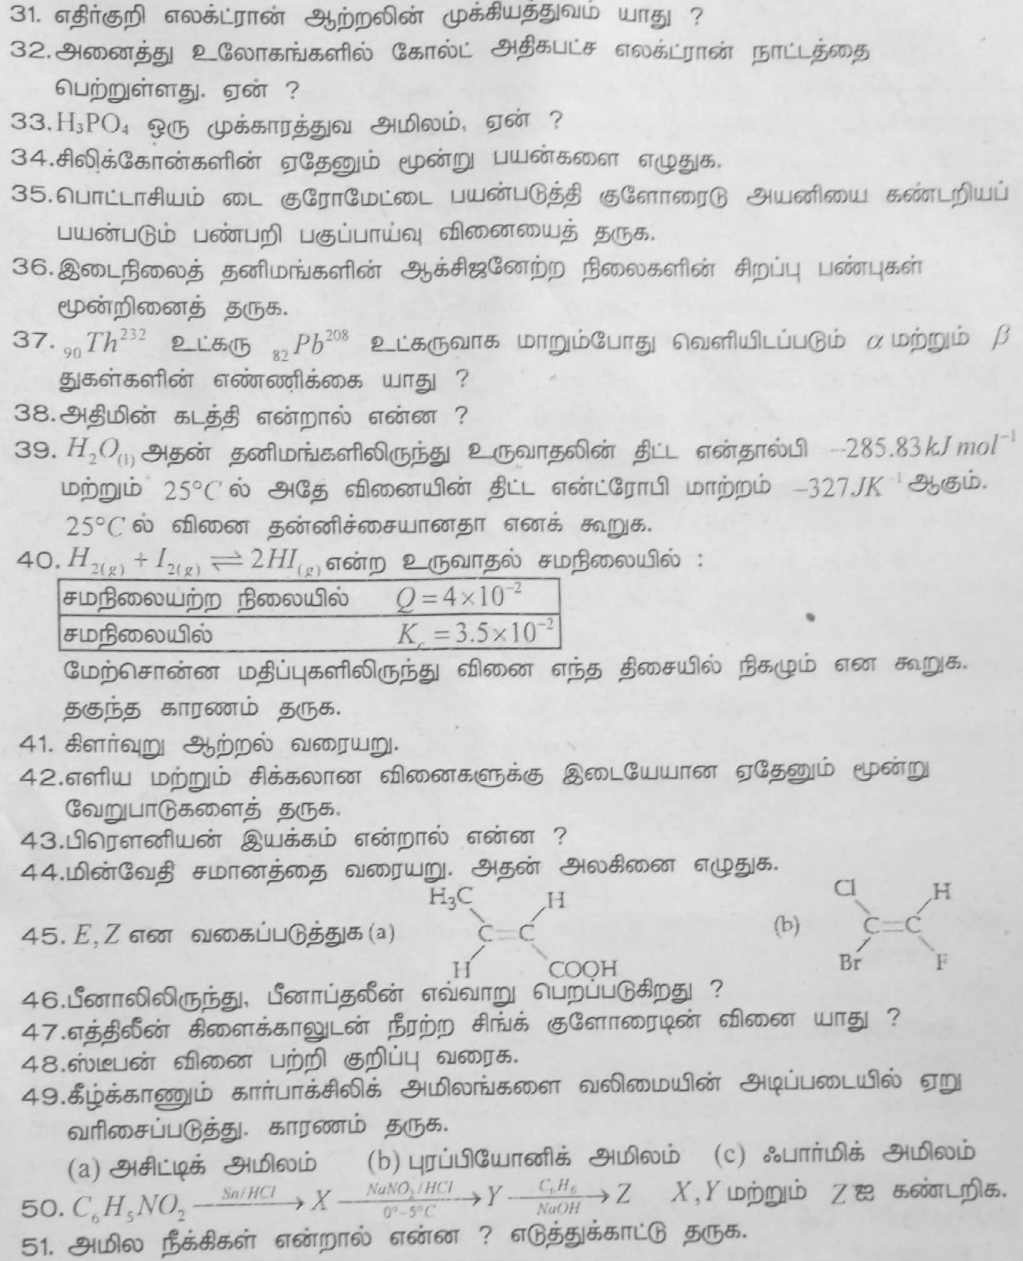 31. எதிர்குறி எலக்ட்ரான் ஆற்றலின் முக்கியத்துவம் யாது ?
32. அனைத்து உலோகங்களில் கோல்ட் அதிகபட்ச எலக்ட்ரான் நாட்டத்தை
பெற்றுள்ளது. ஏன் ?
33. H₃PO₄ ஒரு முக்காரத்துவ அமிலம், ஏன் ?
34. சிலிக்கோன்களின் ஏதேனும் மூன்று பயன்களை எழுதுக.
35. பொட்டாசியம் டை குரோமேட்டை பயன்படுத்தி குளோரைடு அயனியை கண்டறியப்
பயன்படும் பண்பறி பகுப்பாய்வு வினையைத் தருக.
36. இடைநிலைத் தனிமங்களின் ஆக்சிஜனேற்ற நிலைகளின் சிறப்பு பண்புகள்
மூன்றினைத் தருக.
37. ₉₀Th²³² உட்கரு ₈₂Pb²⁰⁸ உட்கருவாக மாறும்போது வெளியிடப்படும் α மற்றும் β
துகள்களின் எண்ணிக்கை யாது ?
38. அதிமின் கடத்தி என்றால் என்ன ?
39. H₂O₍ₗ₎ அதன் தனிமங்களிலிருந்து உருவாதலின் திட்ட என்தால்பி –285.83 kJ mol⁻¹
மற்றும் 25°C ல் அதே வினையின் திட்ட என்ட்ரோபி மாற்றம் –327JK⁻¹ ஆகும்.
25°C ல் வினை தன்னிச்சையானதா எனக் கூறுக.
40. H₂(g) + I₂(g) ⇌ 2HI(g) என்ற உருவாதல் சமநிலையில் :
சமநிலையற்ற நிலையில் Q = 4×10⁻²
சமநிலையில் K_c = 3.5×10⁻²
மேற்சொன்ன மதிப்புகளிலிருந்து வினை எந்த திசையில் நிகழும் என கூறுக.
தகுந்த காரணம் தருக.
41. கிளர்வுறு ஆற்றல் வரையறு.
42. எளிய மற்றும் சிக்கலான வினைகளுக்கு இடையேயான ஏதேனும் மூன்று
வேறுபாடுகளைத் தருக.
43. பிரௌனியன் இயக்கம் என்றால் என்ன ?
44. மின்வேதி சமானத்தை வரையறு. அதன் அலகினை எழுதுக.
H₃C H Cl H
45. E, Z என வகைப்படுத்துக (a) C=C (b) C=C
H COOH Br F
46. பீனாலிலிருந்து, பீனாப்தலீன் எவ்வாறு பெறப்படுகிறது ?
47. எத்திலீன் கிளைக்காலுடன் நீரற்ற சிங்க் குளோரைடின் வினை யாது ?
48. ஸ்டீபன் வினை பற்றி குறிப்பு வரைக.
49. கீழ்க்காணும் கார்பாக்சிலிக் அமிலங்களை வலிமையின் அடிப்படையில் ஏறு
வரிசைப்படுத்து. காரணம் தருக.
(a) அசிட்டிக் அமிலம் (b) புரப்பியோனிக் அமிலம் (c) ஃபார்மிக் அமிலம்
50. C₆H₅NO₂ —Sn/HCl→ X —NaNO₂/HCl 0°-5°C→ Y —C₆H₆ NaOH→ Z X, Y மற்றும் Z ஐ கண்டறிக.
51. அமில நீக்கிகள் என்றால் என்ன ? எடுத்துக்காட்டு தருக.